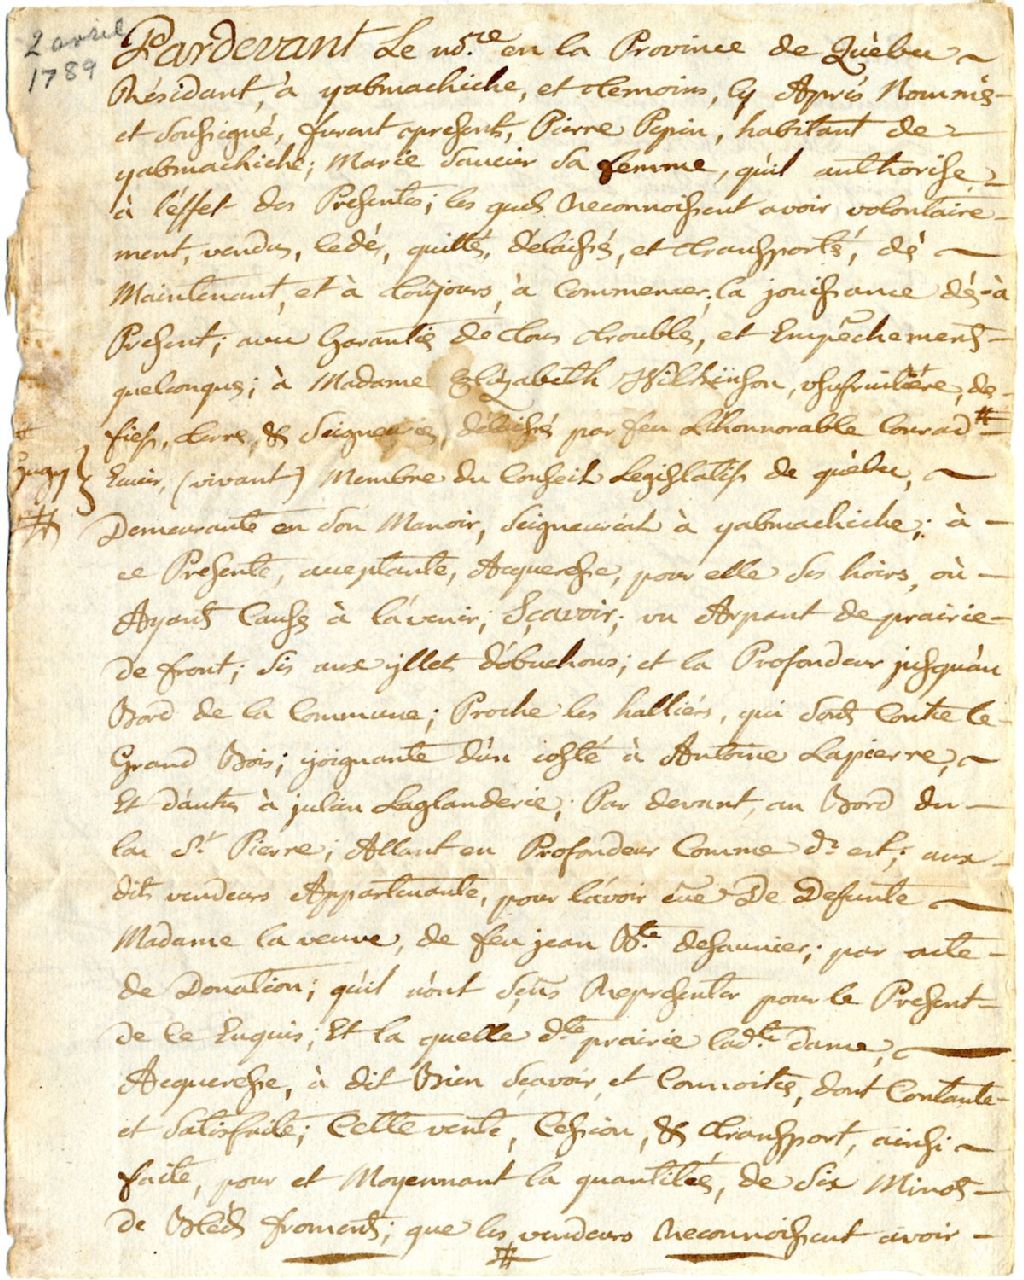 2 avril
1789
Pardevant Le no.re en la Province de Quèbec
Résidant, à yabmachiche, et temoins, Cy Aprés Nommés
et soussigné, furent apresents, Pierre Pepin, habitant de
yabmachiche; Marie saucier sa femme, qu'il authorise,
à l'éffet des Presentes; les quels Reconnoissent avoir volontaire-
ment, vendus, Cedés, quittés, délaissés, et transportés, dé
Maintenant, et à toujours, à Commencer, la jouissance dés-à
Present; avec Garanties de tous troubles, et Empêchements
quelconques; à Madame Elizabeth Wilkinson, usufruitiére, de
fiefs, terre, & Seigneuries, délaissés par feu L'honnorable Conrad #
Gugy
#
Ecuier, (vivant) Membre du Conseil Legislatif de quèbec,
Demeurante en son Manoir, seigneurial à yabmachiche; à
ce Presente, acceptante, Acqueresse, pour elle ses hoirs, où
Ayants Causes à l'avenir, Sçavoir; un Arpant de prairie
de front; sis aux jllets débuchons; et la Profondeur jusqu'au
Bord de la Commune; Proche les halliérs, qui sonts Contre le
Grand Bois; joignante d'un costé à Antoine Lapierre,
Et d'autre à julien Laglanderie; Par devant, au Bord du
lac St Pierre; Allant en Profondeur Comme dt est; aux
dits vendeurs Appartenante, pour l'avoir eüe De Defunte
Madame la veuve, de feu jean Bte. desaunier; par acte
de Donation; qu'il n'ont sçeus Representer pour le Present
de Ce Enquis; Et la quelle dte prairie ladte. dame,
Acqueresse, à dit Bien sçavoir, et Connoitre, dont Contante
et satisfaite; Cette vente, Cession, & transport, ainsi
faite, pour et Moyennant la quantités, de six Minots
de Bléds froments; que les vendeurs Reconnoissent avoir
#